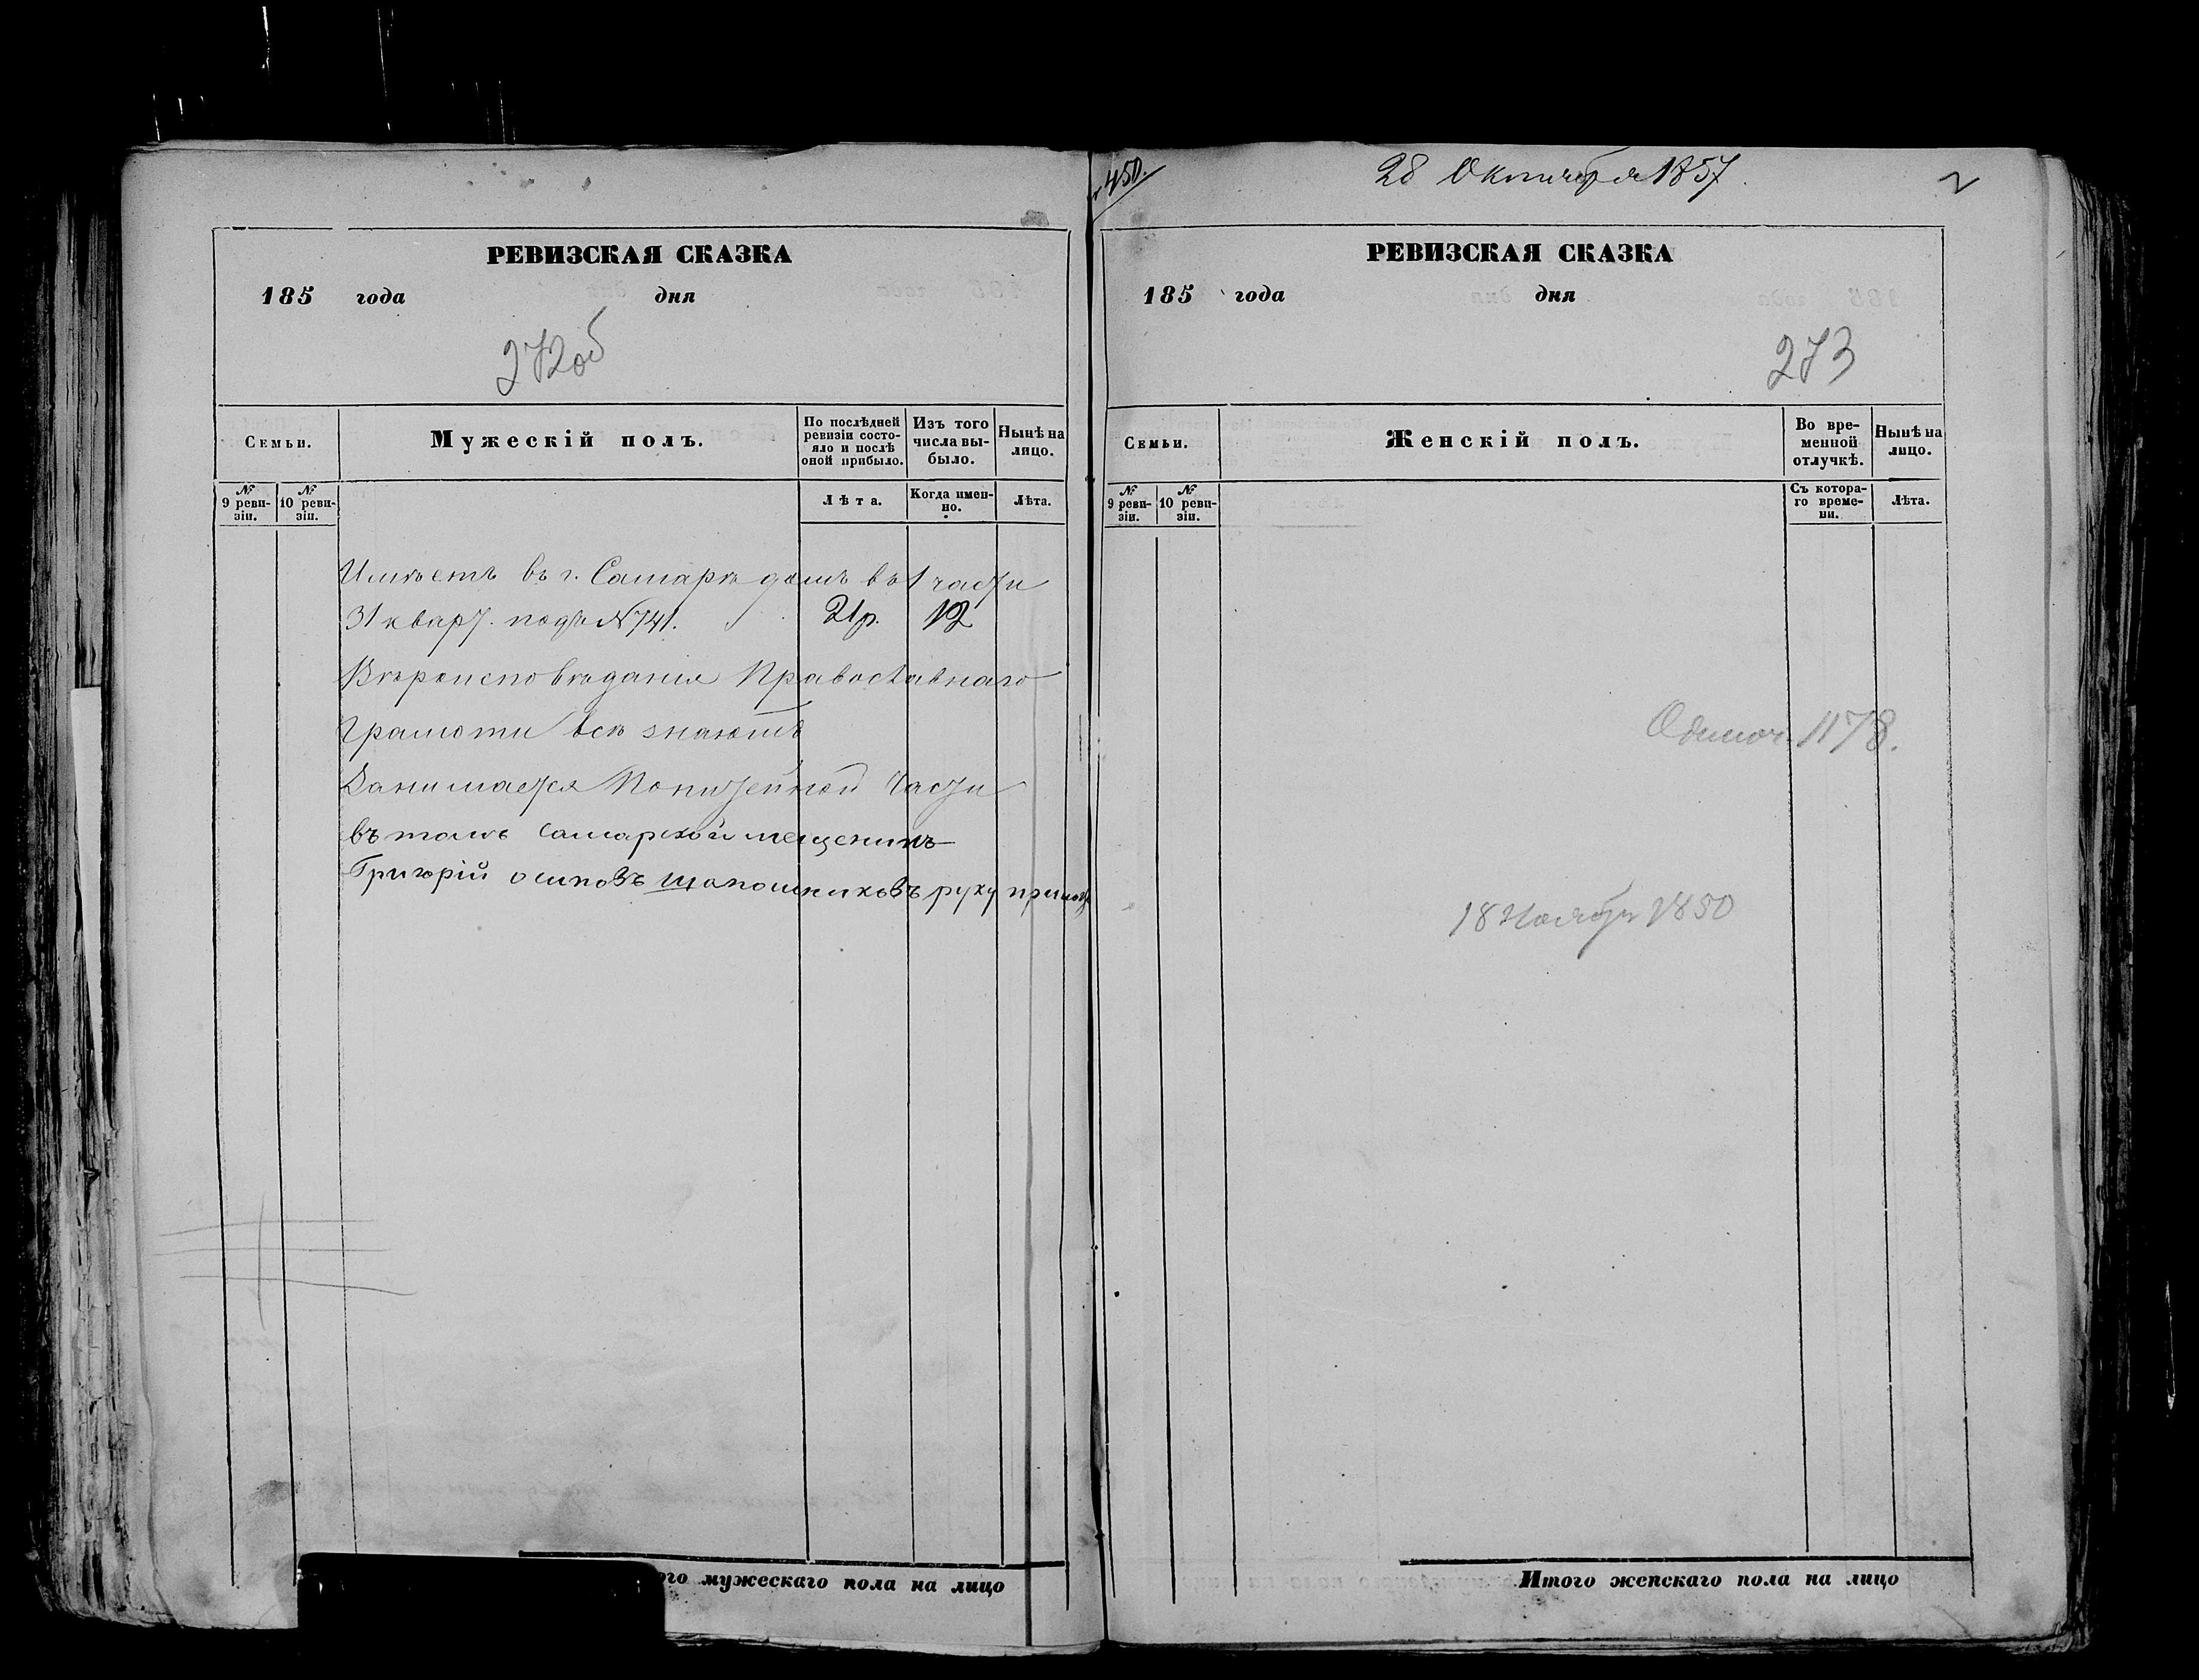 РЕВИЗСКАЯ СКАЗКА
185 года дня
272об
Семьи.
Мужескій полъ.
По послѣдней ревизіи состояло и послѣ оной прибыло.
Изъ того числа выбыло.
Нынѣ на лицо.
№ 9 ревизіи.
№ 10 ревизіи.
Лѣта.
Когда именно.
Лѣта.
Имѣетъ въ г. Самарѣ домъ въ 1 части
31 кварт. подъ №741. 21р. 12
Вѣроисповѣданія Православнаго
Грамоти всѣ знаютъ
Занимается Части
въ томъ самарской мещенинъ
Григорій осиповъ шапошниковъ руку
ого мужескаго пола на лицо
450.
28 Октября 1857
2
РЕВИЗСКАЯ СКАЗКА
185 года дня
273
Семьи.
Женскій полъ.
Во временной отлучкѣ.
Нынѣ на лицо.
№ 9 ревизіи.
№ 10 ревизіи.
Съ котораго времени.
Лѣта.
1178.
18 Ноября 1850
Итого женскаго пола на лицо